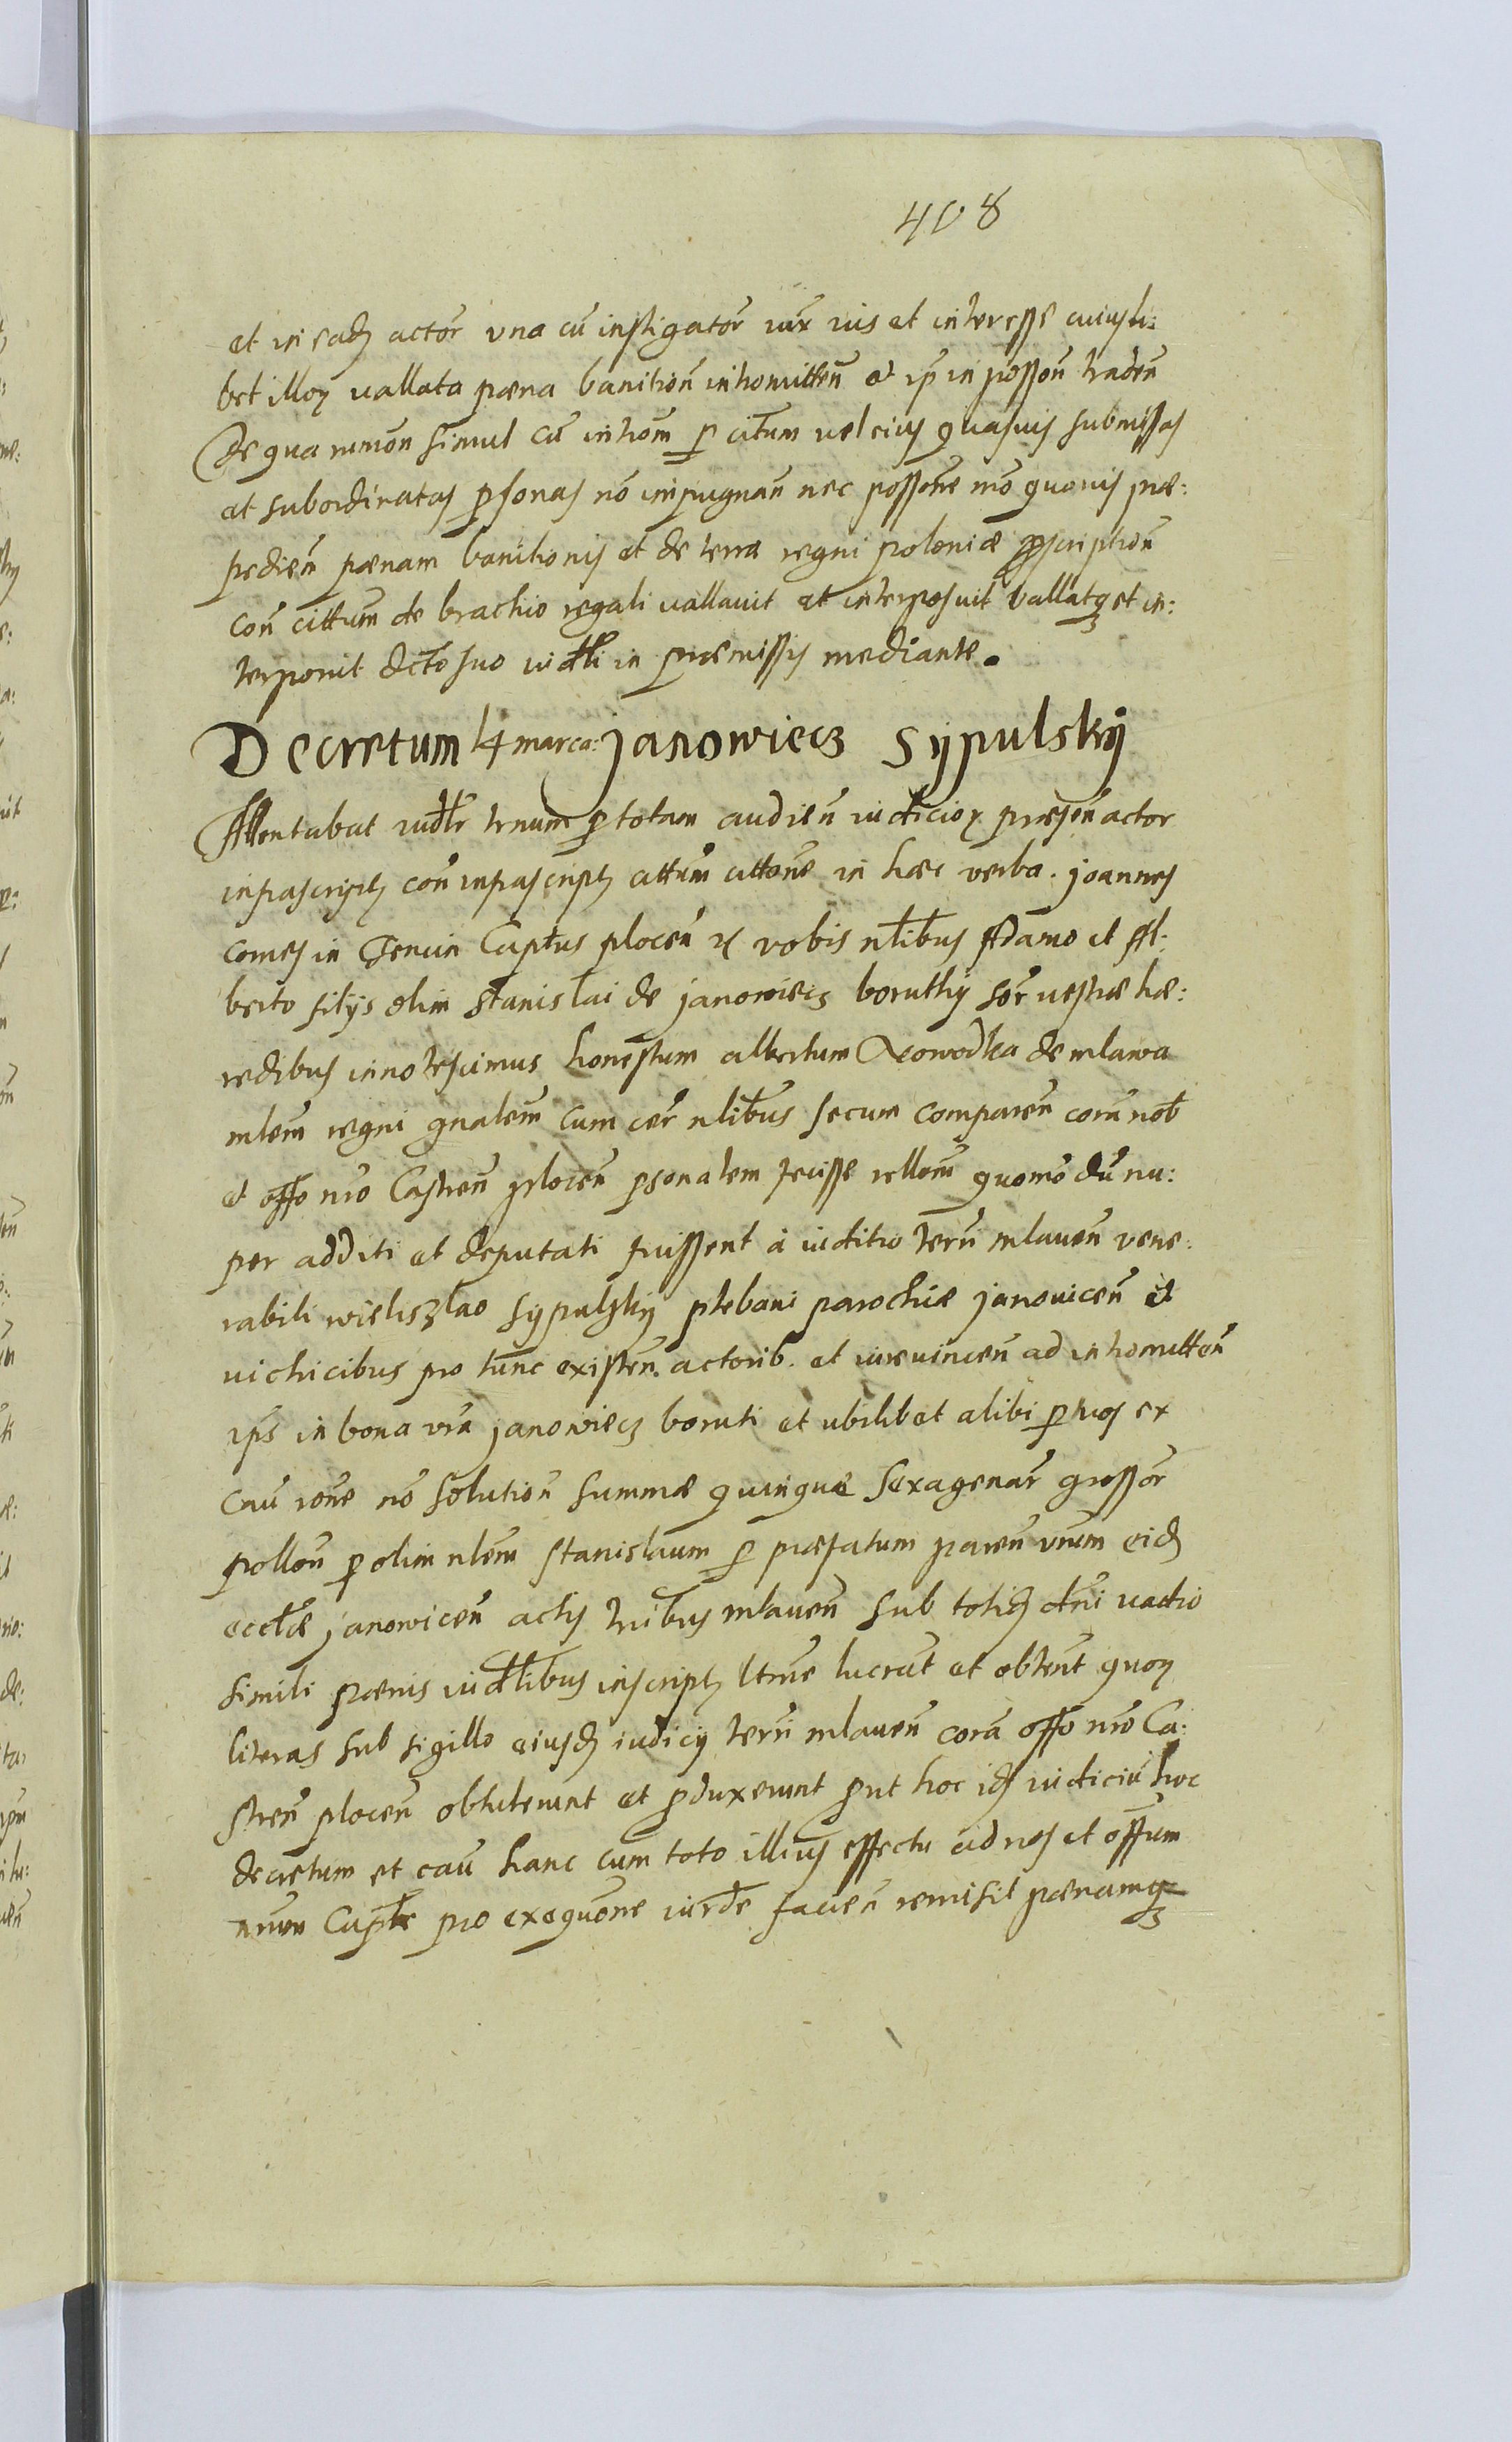 408
et in eadꝫ actor̄ vna cū instigator̄ iux̄ ius et interesse cuiusli:
bet illoꝝ vallata pœna banition̄ intromitten̄ et ip̄ in posson̄ traden̄
De qua rumōn simul cū introm̄ ꝑ citum vel eius quasuis submissas
et subordinatas ꝑsonas nō impugnan̄ nec possone mō quouis præ:
pedien̄ pœnam banitionis et de terra regni poloniæ ꝓscription̄
con̄ cittum de brachio regali vallauit et interposuit vallatqꝫ et in:
terponit dcto suo iudli in præmissis mediante.
Decretum 14 marca: janowiecz Sypulskÿ
Attentabat iudlr trnum ꝑ totam audien̄ iudicioꝝ præsen̄ actor
infrascriptꝫ con̄ infrascriptꝫ attum̄ cittone in hæc verba. joannes
comes in Tencin Captus plocen̄ ꝛc vobis nlibus Adamo et Al:
berto filijs olim Stanislai de janowiecz boruthy sor̄ vestræ hæ:
redibus innotescimus honestum albertum Nowodka de mlawa
mlem̄ regni gnalem̄ cum cer̄ nlibus secum comparen̄ corā nob̄
et offo nrō Castren̄ plocen̄ ꝑsonalem fecisse rellom̄ quomō dū nu:
per additi et deputati fuissent à iuditio terrī mlauen̄ vene:
rabili wieliszlao Sypulsky plebani parochiæ janouicen̄ et
uichicibus pro tunc existen̄. actorib. et iureuincen̄ ad intromitten̄
ip̄s in bona vrā janowiecz boruti et ubilibet alibi ꝑ hos ex
cau rone nō solution̄ summæ quinque sexagenar̄ grossor̄
pollon̄ ꝑ olim nlem̄ Stanislaum ꝑ præfatum paren̄ vrum eidꝫ
ecclæ janowicen̄ actis tribus mlauen̄ sub totidꝫ dni vadio
simili pœnis iudlibus inscriptꝫ ltme lucrat et obtent quoꝝ
literas sub sigillo eiusdꝫ iudicij terrī mlauen̄ corā offo nrō Ca:
stren̄ plocen̄ obtulerunt et ꝓduxerunt ꝓut hoc idꝫ iudiciū hoc
decretum et cau hanc cum toto illius effectu ad nos et offum
nrum Captle pro exequōne iurde facien̄ remisit pœnamqꝫ